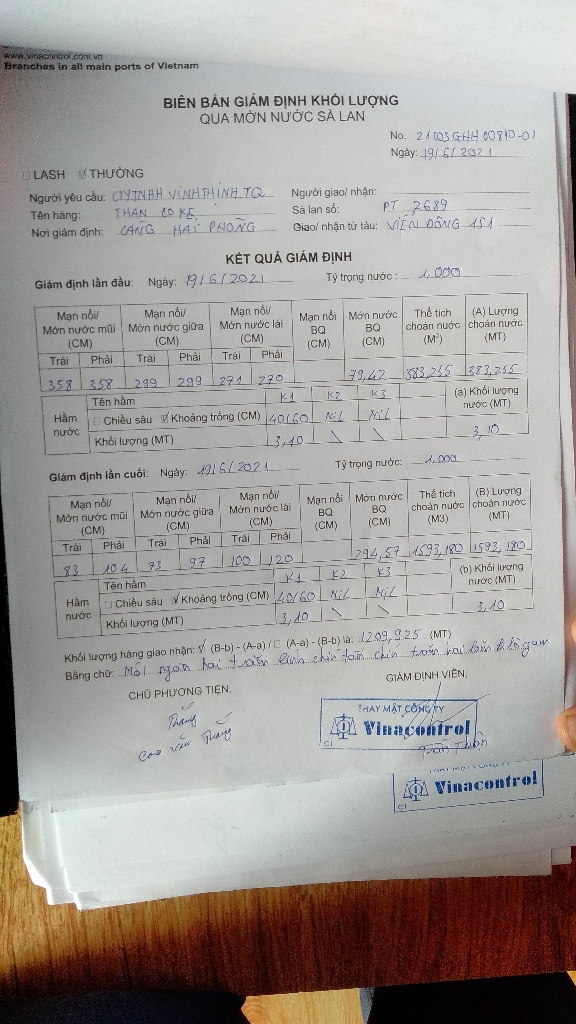 www.vinacontrol.com.vn
Branches in all main ports of Vietnam
BIÊN BẢN GIÁM ĐỊNH KHỐI LƯỢNG
QUA MỚN NƯỚC SÀ LAN
No. 21G03GHH00810-01
Ngày: 19/6/2021
LASH THƯỜNG
Người yêu cầu: CTYTNHH VĨNH THỊNH TQ Người giao/ nhận:
Tên hàng: THAN CO KE Sà lan số: PT 2689
Nơi giám định: CẢNG HẢI PHÒNG Giao/ nhận từ tàu: VIỄN ĐÔNG 151
KẾT QUẢ GIÁM ĐỊNH
Giám định lần đầu: Ngày: 19/6/2021 Tỷ trọng nước: 1,000
Mạn nổi/ Mớn nước mũi (CM) Mạn nổi/ Mớn nước giữa (CM) Mạn nổi/ Mớn nước lái (CM) Mạn nổi BQ (CM) Mớn nước BQ (CM) Thể tích choán nước (M³) (A) Lượng choán nước (MT)
Trái Phải Trái Phải Trái Phải
358 358 299 299 271 270 79,42 383,255 383,255
Hầm nước Tên hầm K1 K2 K3 (a) Khối lượng nước (MT)
Chiều sâu Khoảng trống (CM) 40/60 Nil Nil
Khối lượng (MT) 3,10 \ \ 3,10
Giám định lần cuối: Ngày: 19/6/2021 Tỷ trọng nước: 1.000
Mạn nổi/ Mớn nước mũi (CM) Mạn nổi/ Mớn nước giữa (CM) Mạn nổi/ Mớn nước lái (CM) Mạn nổi BQ (CM) Mớn nước BQ (CM) Thể tích choán nước (M3) (B) Lượng choán nước (MT)
Trái Phải Trái Phải Trái Phải
83 104 73 97 100 120 294,57 1593,180 1593,180
Hầm nước Tên hầm K1 K2 K3 (b) Khối lượng nước (MT)
Chiều sâu Khoảng trống (CM) 40/60 Nil Nil
Khối lượng (MT) 3,10 \ \ 3,10
Khối lượng hàng giao nhận: (B-b) - (A-a) / (A-a) - (B-b) là: 1209,925 (MT)
Bằng chữ: Một ngàn hai trăm linh chín tấn chín trăm hai lăm kilôgam
CHỦ PHƯƠNG TIỆN, GIÁM ĐỊNH VIÊN,
Thắng
Cao Văn Thắng
THAY MẶT CÔNG TY
Vinacontrol
C1
Trần Thuận
Vinacontrol
C1